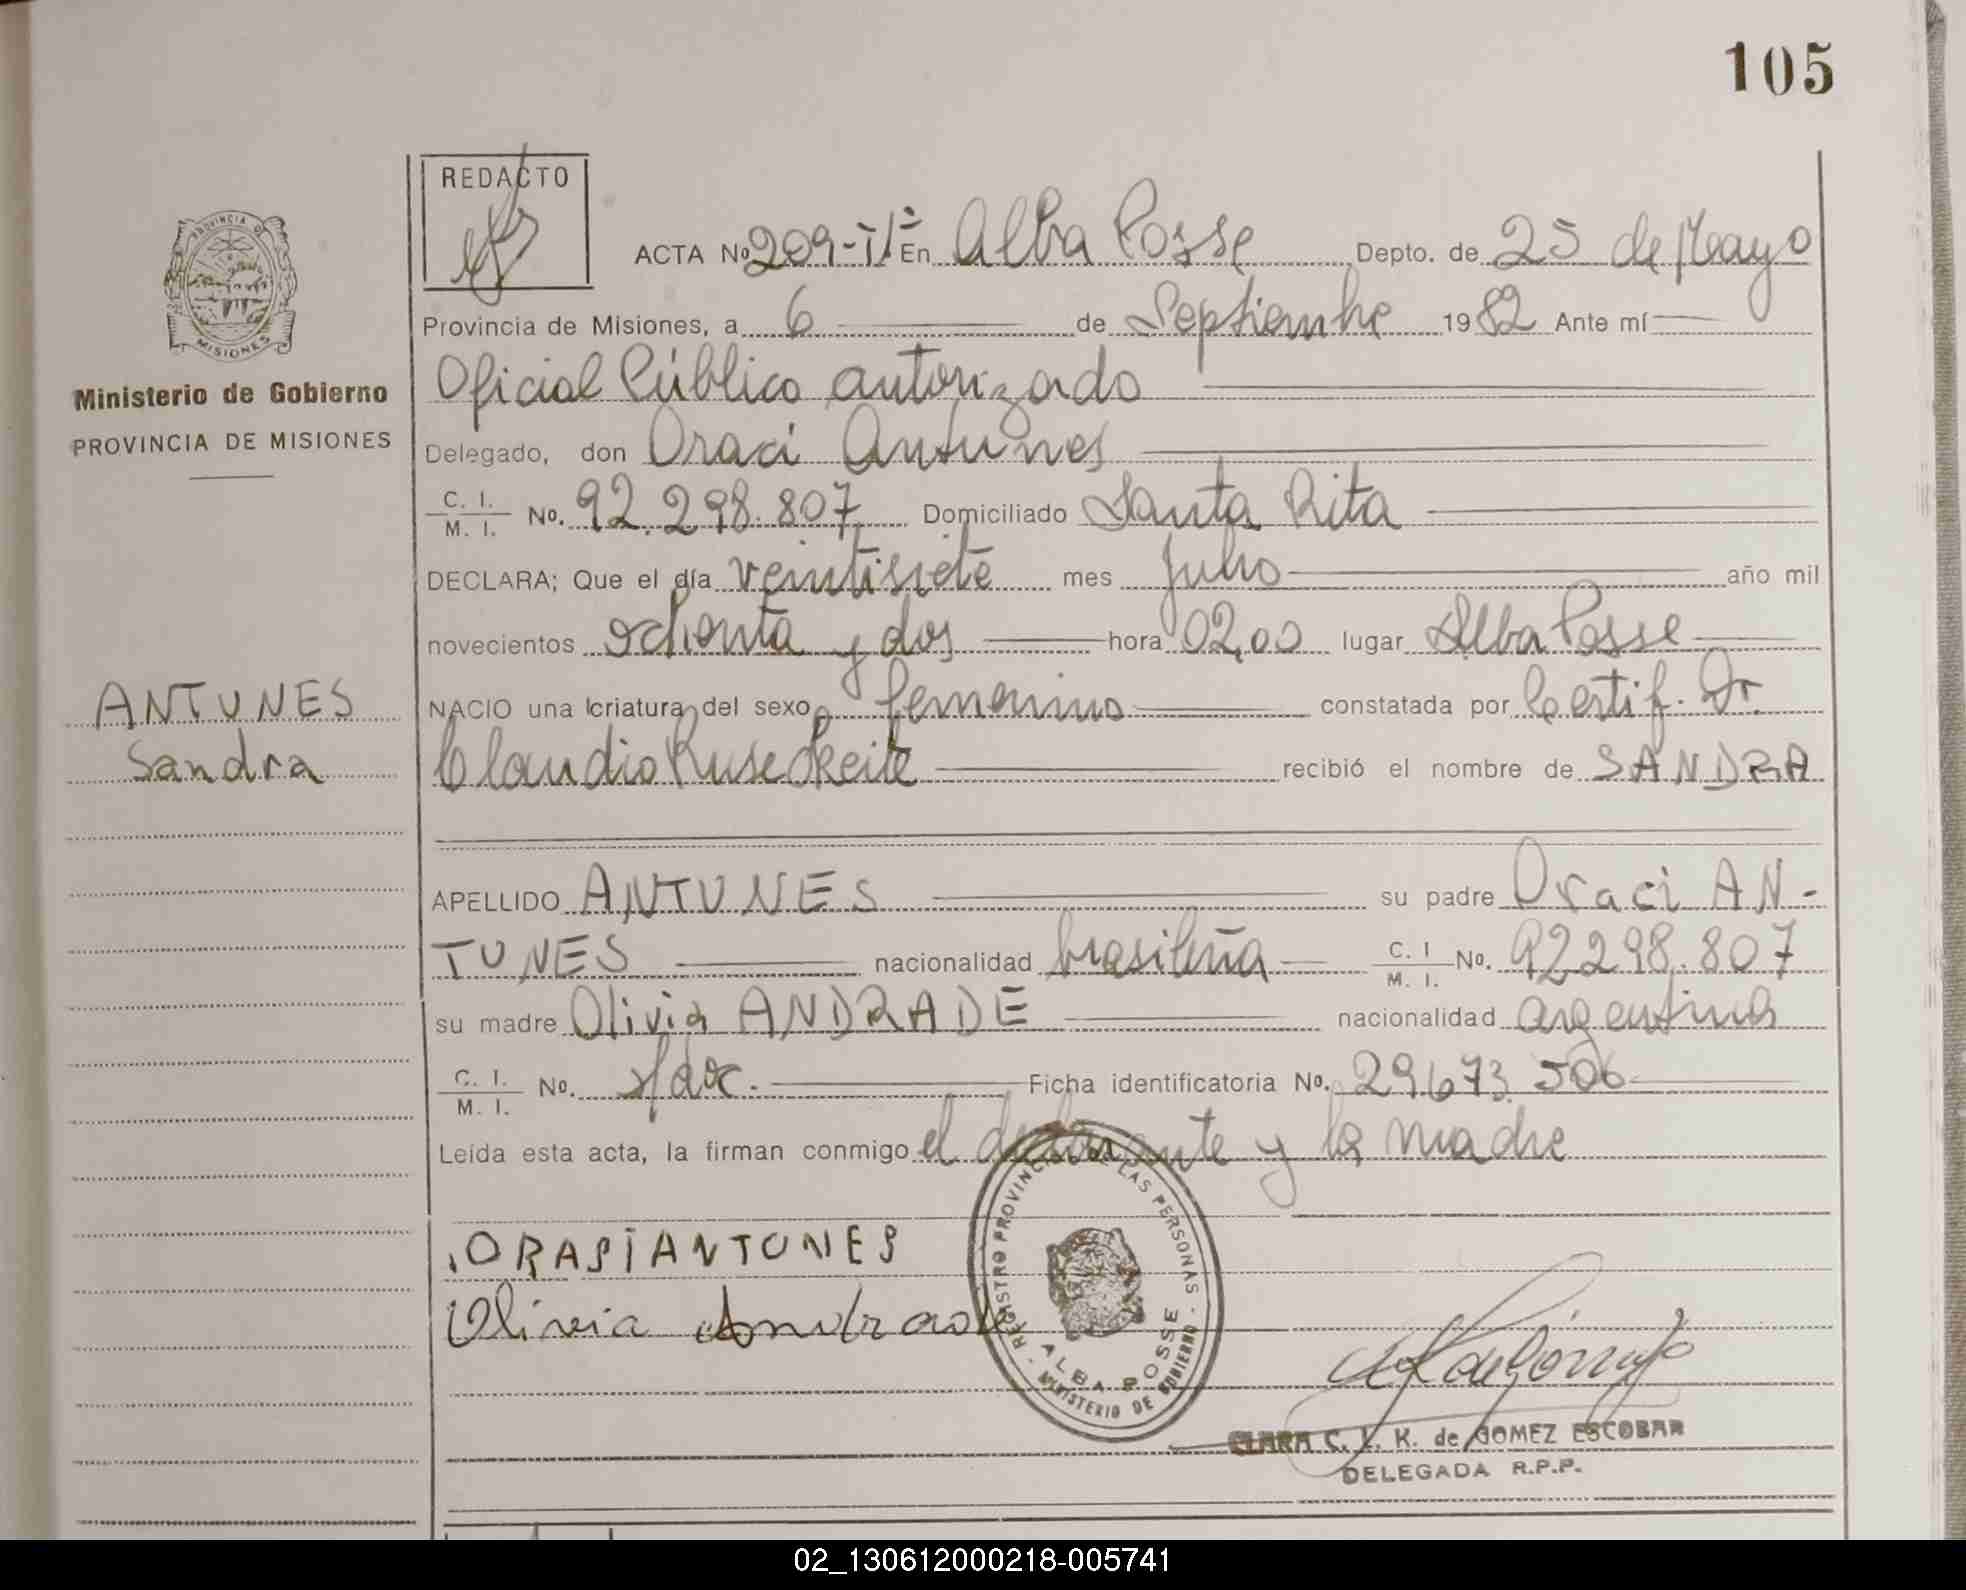 105
REDACTO
ACTA Nº 209-II- En Alba Posse Depto. de 25 de Mayo
Provincia de Misiones, a 6 de Septiembre 1982 Ante mí
Oficial Público autorizado
Delegado, don Oraci Antunes
C. I.
M. I. Nº. 92.298.807 Domiciliado Santa Rita
DECLARA; Que el día veintisiete mes Julio año mil
novecientos ochenta y dos hora 02,00 lugar Alba Posse
NACIO una criatura del sexo femenino constatada por Certif. Dr.
Claudio recibió el nombre de SANDRA
APELLIDO ANTUNES su padre Oraci AN-
TUNES nacionalidad brasileña C. I. M. I. Nº. 92298.807
su madre Olivia ANDRADE nacionalidad argentina
C. I.
M. I. Nº. s/doc. Ficha identificatoria Nº. 29673.506
Leída esta acta, la firman conmigo el declarante y la madre
ORASIANTUNES
Olivia Andrade
REGISTRO PROVINCIAL DE LAS PERSONAS
ALBA POSSE
MINISTERIO DE GOBIERNO
CLARA C. K. de GOMEZ ESCOBAR
DELEGADA R.P.P.
PROVINCIA DE
MISIONES
Ministerio de Gobierno
PROVINCIA DE MISIONES
ANTUNES
Sandra
02_130612000218-005741